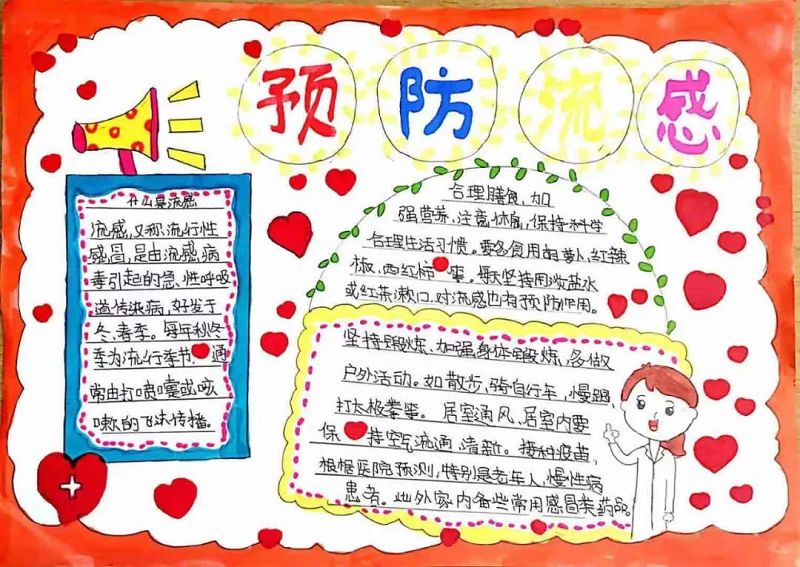 预防流感
什么是流感
流感,又称流行性
感冒,是由流感,病
毒引起的急、性呼吸
道传染病,好发于
冬、春季。每年秋冬
季为流行季节. 通
常由打喷嚏或咳
嗽的飞沫传播。
合理膳食、加
强营养、注意休息,保持科学
合理生活习惯。要多食用胡萝卜,红辣
椒、西红柿 等。每天坚持用淡盐水
或红茶漱口.对流感也有预防作用。
坚持锻炼、加强身体锻炼,多做
户外活动。如散步、骑自行车、慢跑、
打太极拳等。居室通风、居室内要
保 持空气流通,清新。接种疫苗,
根据医院预测,特别是老年人,慢性病
患者。此外家内备些常用感冒类药品。